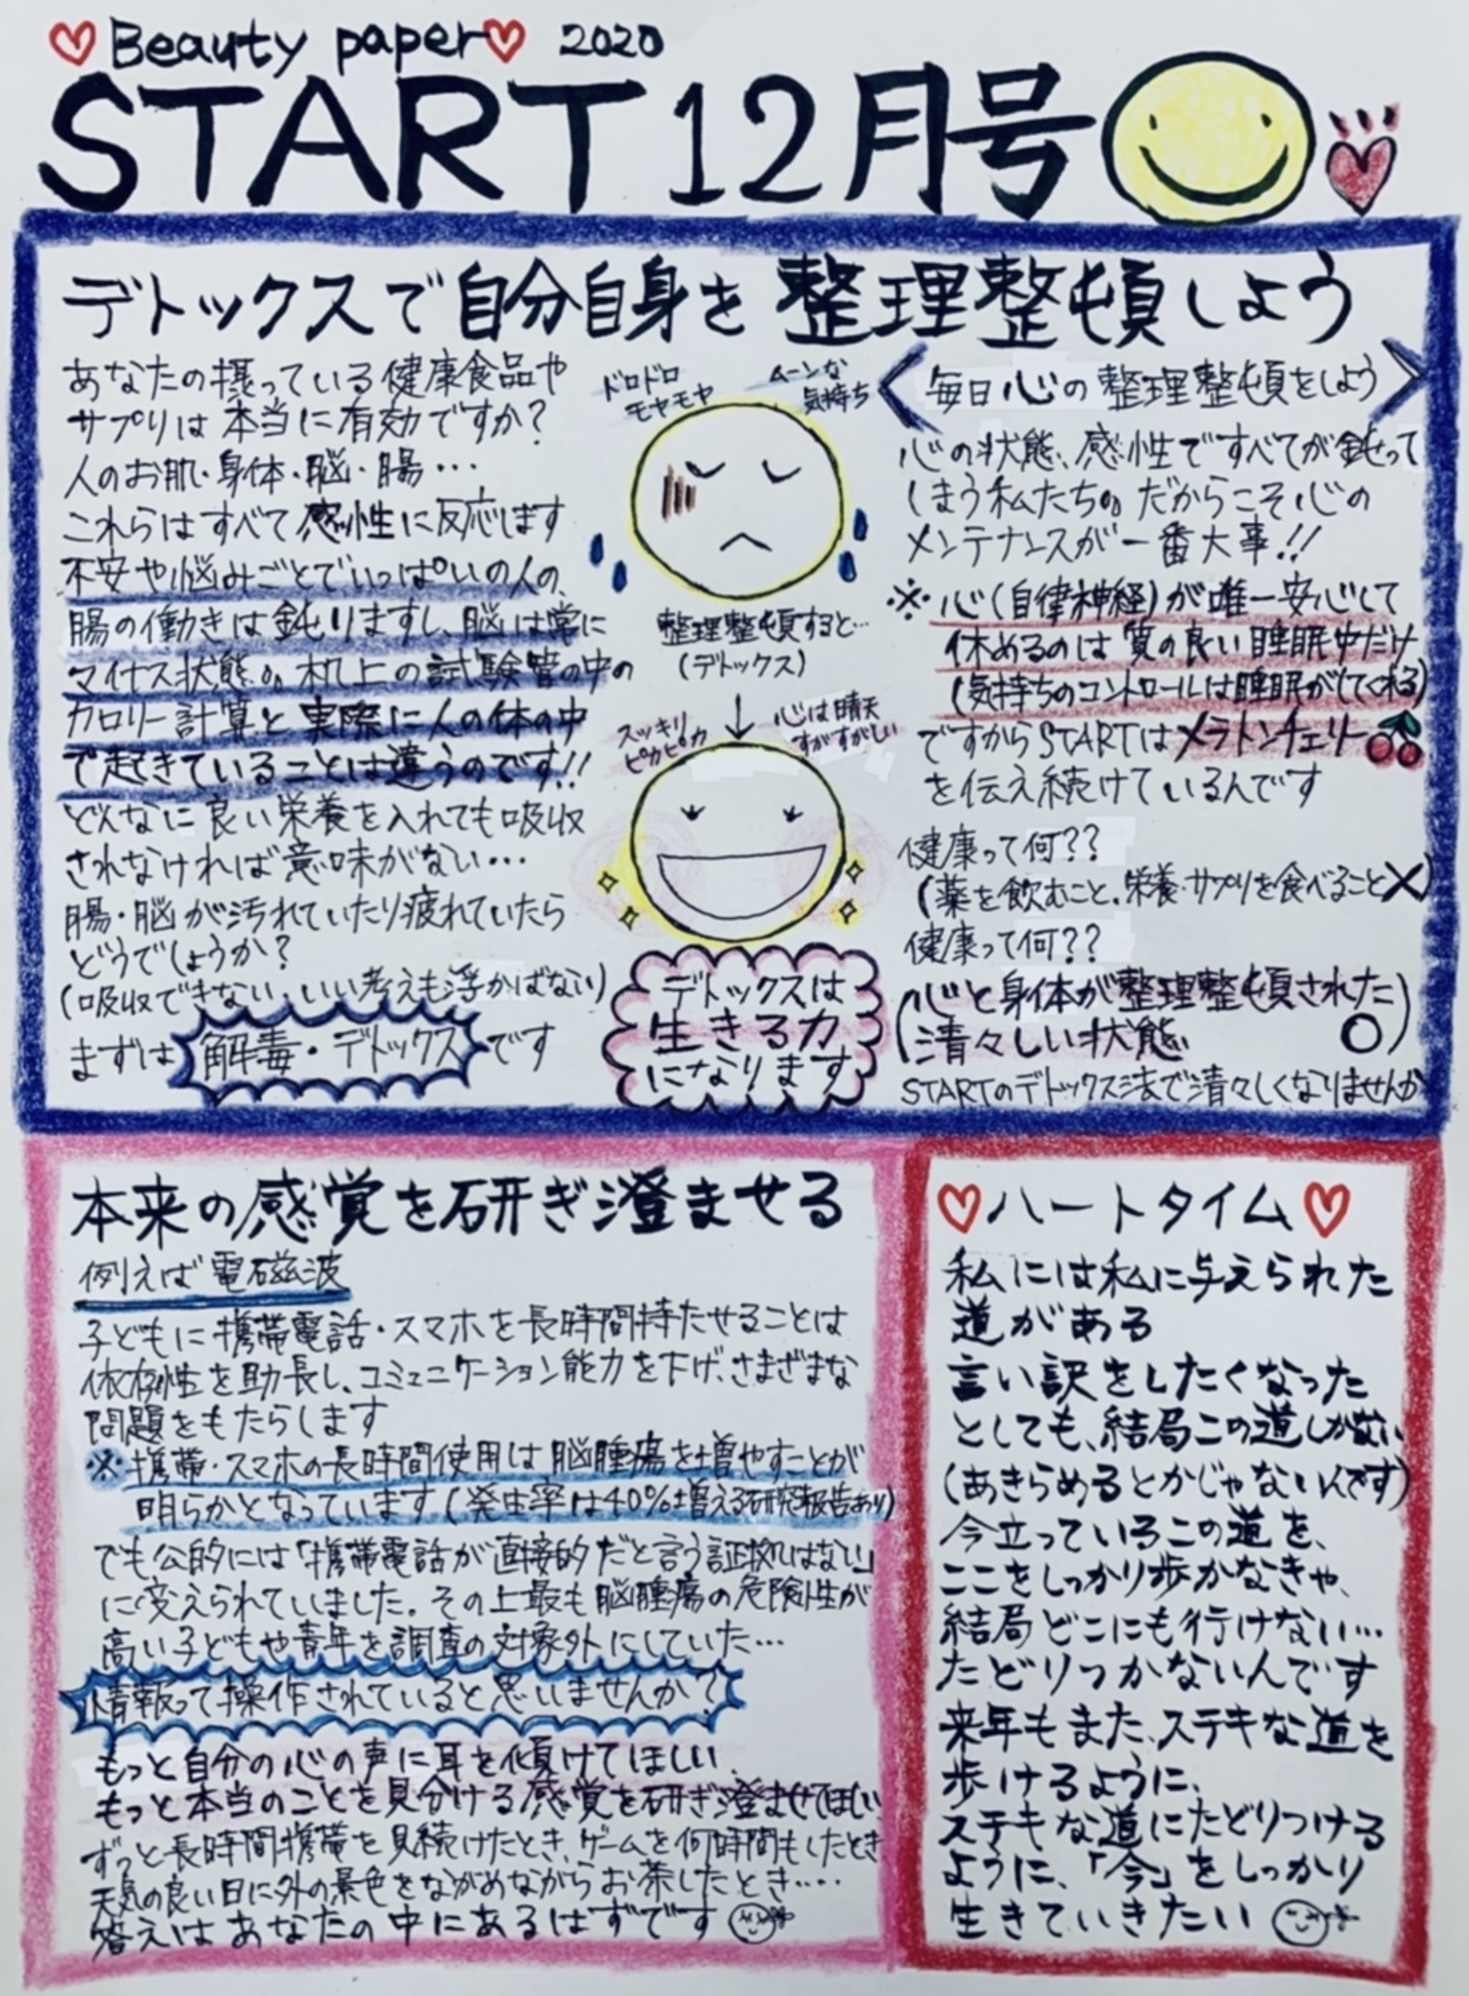 Beauty paper 2020
START 12月号
デトックスで自分自身を整理整頓しよう
あなたの摂っている健康食品や
サプリは本当に有効ですか?
人のお肌・身体・脳・腸・・・
これらはすべて感性に反応します
不安や悩みごとでいっぱいの人の、
腸の働きは鈍りますし、脳は常に
マイナス状態。机上の試験管の中の
カロリー計算と実際に人の体の中
で起きていることは違うのです!!
どんなに良い栄養を入れても吸収
されなければ意味がない・・・
腸・脳が汚れていたり疲れていたら
どうでしょうか?
(吸収できない、いい考えも浮かばない)
まずは解毒・デトックスです
ドロドロ
モヤモヤ
ムーンな
気持ち
整理整頓すると…
(デトックス)
↓
スッキリ
ピカピカ
心は晴天
すがすがしい
デトックスは
生きる力
になります
〈毎日心の整理整頓をしよう〉
心の状態、感性ですべてが鈍って
しまう私たち。だからこそ心の
メンテナンスが一番大事!!
※心(自律神経)が唯一安心して
休めるのは質の良い睡眠中だけ
(気持ちのコントロールは睡眠がしてくれる)
ですからSTARTはメラトンチェリー
を伝え続けているんです
健康って何??
(薬を飲むこと、栄養・サプリを食べること×)
健康って何??
(心と身体が整理整頓された
清々しい状態 ○)
STARTのデトックス法で清々しくなりませんか
本来の感覚を研ぎ澄ませる
例えば電磁波
子どもに携帯電話・スマホを長時間持たせることは
依存性を助長し、コミュニケーション能力を下げ、さまざまな
問題をもたらします
※携帯・スマホの長時間使用は脳腫瘍を増やすことが
明らかとなっています(発生率は40%増える研究報告あり)
でも公的には「携帯電話が直接的だと言う証拠はない」
に変えられていました。その上最も脳腫瘍の危険性が
高い子どもや青年を調査の対象外にしていた…
情報って操作されていると思いませんか?
もっと自分の心の声に耳を傾けてほしい
もっと本当のことを見分ける感覚を研ぎ澄ませてほしい
ずっと長時間携帯を見続けたとき、ゲームを何時間もしたとき
天気の良い日に外の景色をながめながらお茶したとき・・・・
答えはあなたの中にあるはずです
ハートタイム
私には私に与えられた
道がある
言い訳をしたくなった
としても、結局この道しかない
(あきらめるとかじゃないんです)
今立っているこの道を、
ここをしっかり歩かなきゃ、
結局どこにも行けない…
たどりつかないんです
来年もまた、ステキな道を
歩けるように、
ステキな道にたどりつける
ように、「今」をしっかり
生きていきたい